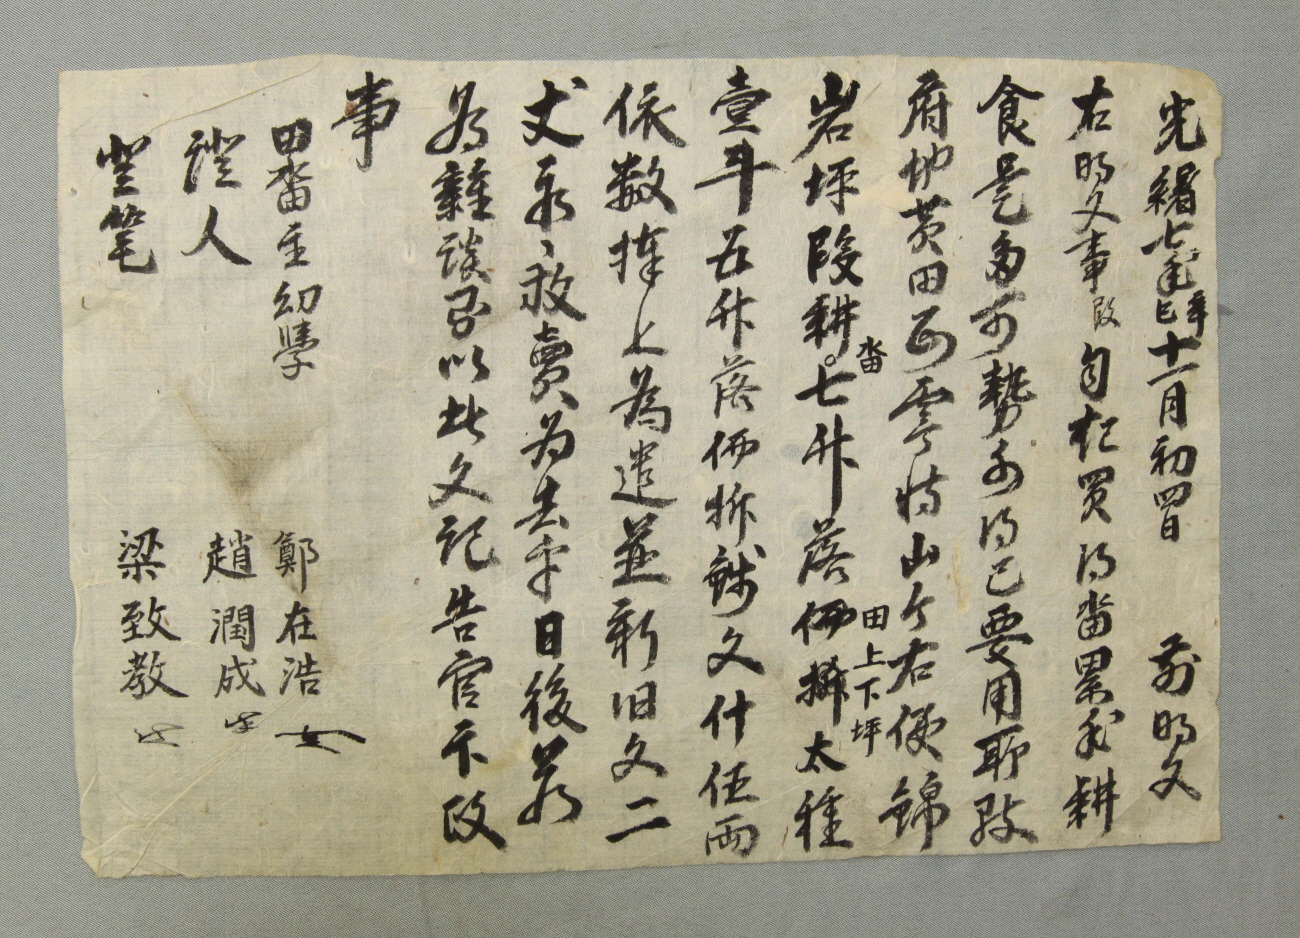 光緖七年辛巳十一月初四日 前明文
右明文事段自起買得畓累年耕
食是多可勢不得已要用所致
府地黃田面雩特山ケ右便錦
岩坪員耕畓七升落㐣田上下坪太種
壹斗五升落㐣折錢文什伍兩
依數捧上爲遣並新旧文二
丈永〻放賣爲去乎日後若
爲雜談則以此文記告官卞政
事
田畓主幼學 鄭在浩
證人 趙潤成
證筆 梁致敎